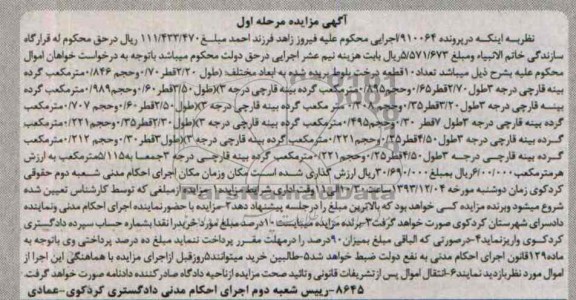 آگهی مزایده مرحله اول
نظربه اینکه درپرونده ۹۱۰۰۶۴/اجرایی محکوم علیه فیروز زاهد فرزند احمد مبلغ ۱۱۱/۴۳۳/۴۷۰ ریال درحق محکوم له قرارگاه
سازندگی خاتم الانبیاء ومبلغ ۵/۵۷۱/۶۷۳ریال بابت هزینه نیم عشر اجرایی درحق دولت محکوم میباشد باتوجه به درخواست خواهان اموال
محکوم علیه بشرح ذیل میباشد تعداد ۱۰قطعه درخت بلوط بریده شده به ابعاد مختلف (طول ۲/۲۰قطر۰/۷۰ وحجم ۰/۸۴۶مترمکعب گرده
بینه قارچی درجه ۳طول ۲/۷۰قطر۰/۶۵ وحجم۰/۸۹۵مترمکعب گرده بینه قارچی درجه ۳)(طول۳/۵۰قطر۰/۶۰ وحجم۰/۹۸۹مترمکعب گرده
بینه قارچی درجه ۳طول ۳/۲۰قطر۰/۳۵ وحجم مترمکعب گرده بینه قارچی درجه ۳)(طول ۲/۵۰قطر۰/۶۰ وحجم ۰/۷۰۷ مترمکعب
گرده بینه قارچی درجه ۳طول ۷قطر ۰/۳۰ وحجم۰/۴۹۵مترمکعب گرده بینه قارچی درجه ۳)(طول۲/۳۰قطر۰/۳۵ وحجم۰/۲۲۱مترمکعب
گرده بینه قارچی درجه ۳طول ۴/۵۰قطر۰/۲۵ وحجم۰/۲۲۱مترمکعب گرده بینه قارچی درجه ۳)(طول ۳قطر۰/۳۰ وحجم ۰/۲۱۲ مترمکعب
گرده بینه قارچی درجه ۳طول ۴/۵۰قطر۰/۲۵ وحجم۰/۲۲۱مترمکعب گرده بینه قارچی درجه ۳جمعا به۵/۱۱۵مترمکعب به ارزش
هرمترمکعب ۶/۰۰۰/۰۰۰ریال بمبلغ ۳۰/۶۹۰/۰۰۰ ریال ارزش گذاری شده است مکان وزمان مکان اجرای احکام مدنی شعبه دوم حقوقی
کردکوی زمان دوشنبه مورخه ۱۳۹۳/۱۲/۰۴ ساعت ۱۰:۳۰ الی وقت اداری شرایط مزایده ۱-مزایده ازمبلغی که توسط کارشناس تعیین شده
شروع میشود وبرنده مزایده کسی خواهد بود که بالاترین مبلغ را درجلسه پیشنهاد دهد۲-مزایده با حضورنماینده اجرای احکام مدنی ونماینده
دادسرای شهرستان کردکوی صورت خواهد گرفت۳-برنده مزایده میبایست ۱۰درصد مبلغ مورد خریدرا نقدا بشماره حساب سپرده دادگستری
کردکوی واریزنماید۴-درصورتی که الباقی مبلغ بمیزان ۹۰درصد را درمهلت مقرر پرداخت ننماید مبلغ ده درصد پرداختی وی باتوجه به
ماده۱۲۹قانون اجرای احکام مدنی به نفع دولت ضبط خواهد شد۵-طالبین خرید میتوانند۵روزقبل ازاجرای مزایده با هماهنگی این اجرا از
اموال مورد نظربازدید نمایند۶-انتقال اموال پس ازتشریفات قانونی وتائید صحت مزایده ازناحیه دادگاه صادرکننده دادنامه صورت خواهد گرفت
۸۶۴۵-رییس شعبه دوم اجرای احکام مدنی دادگستری کردکوی-عمادی